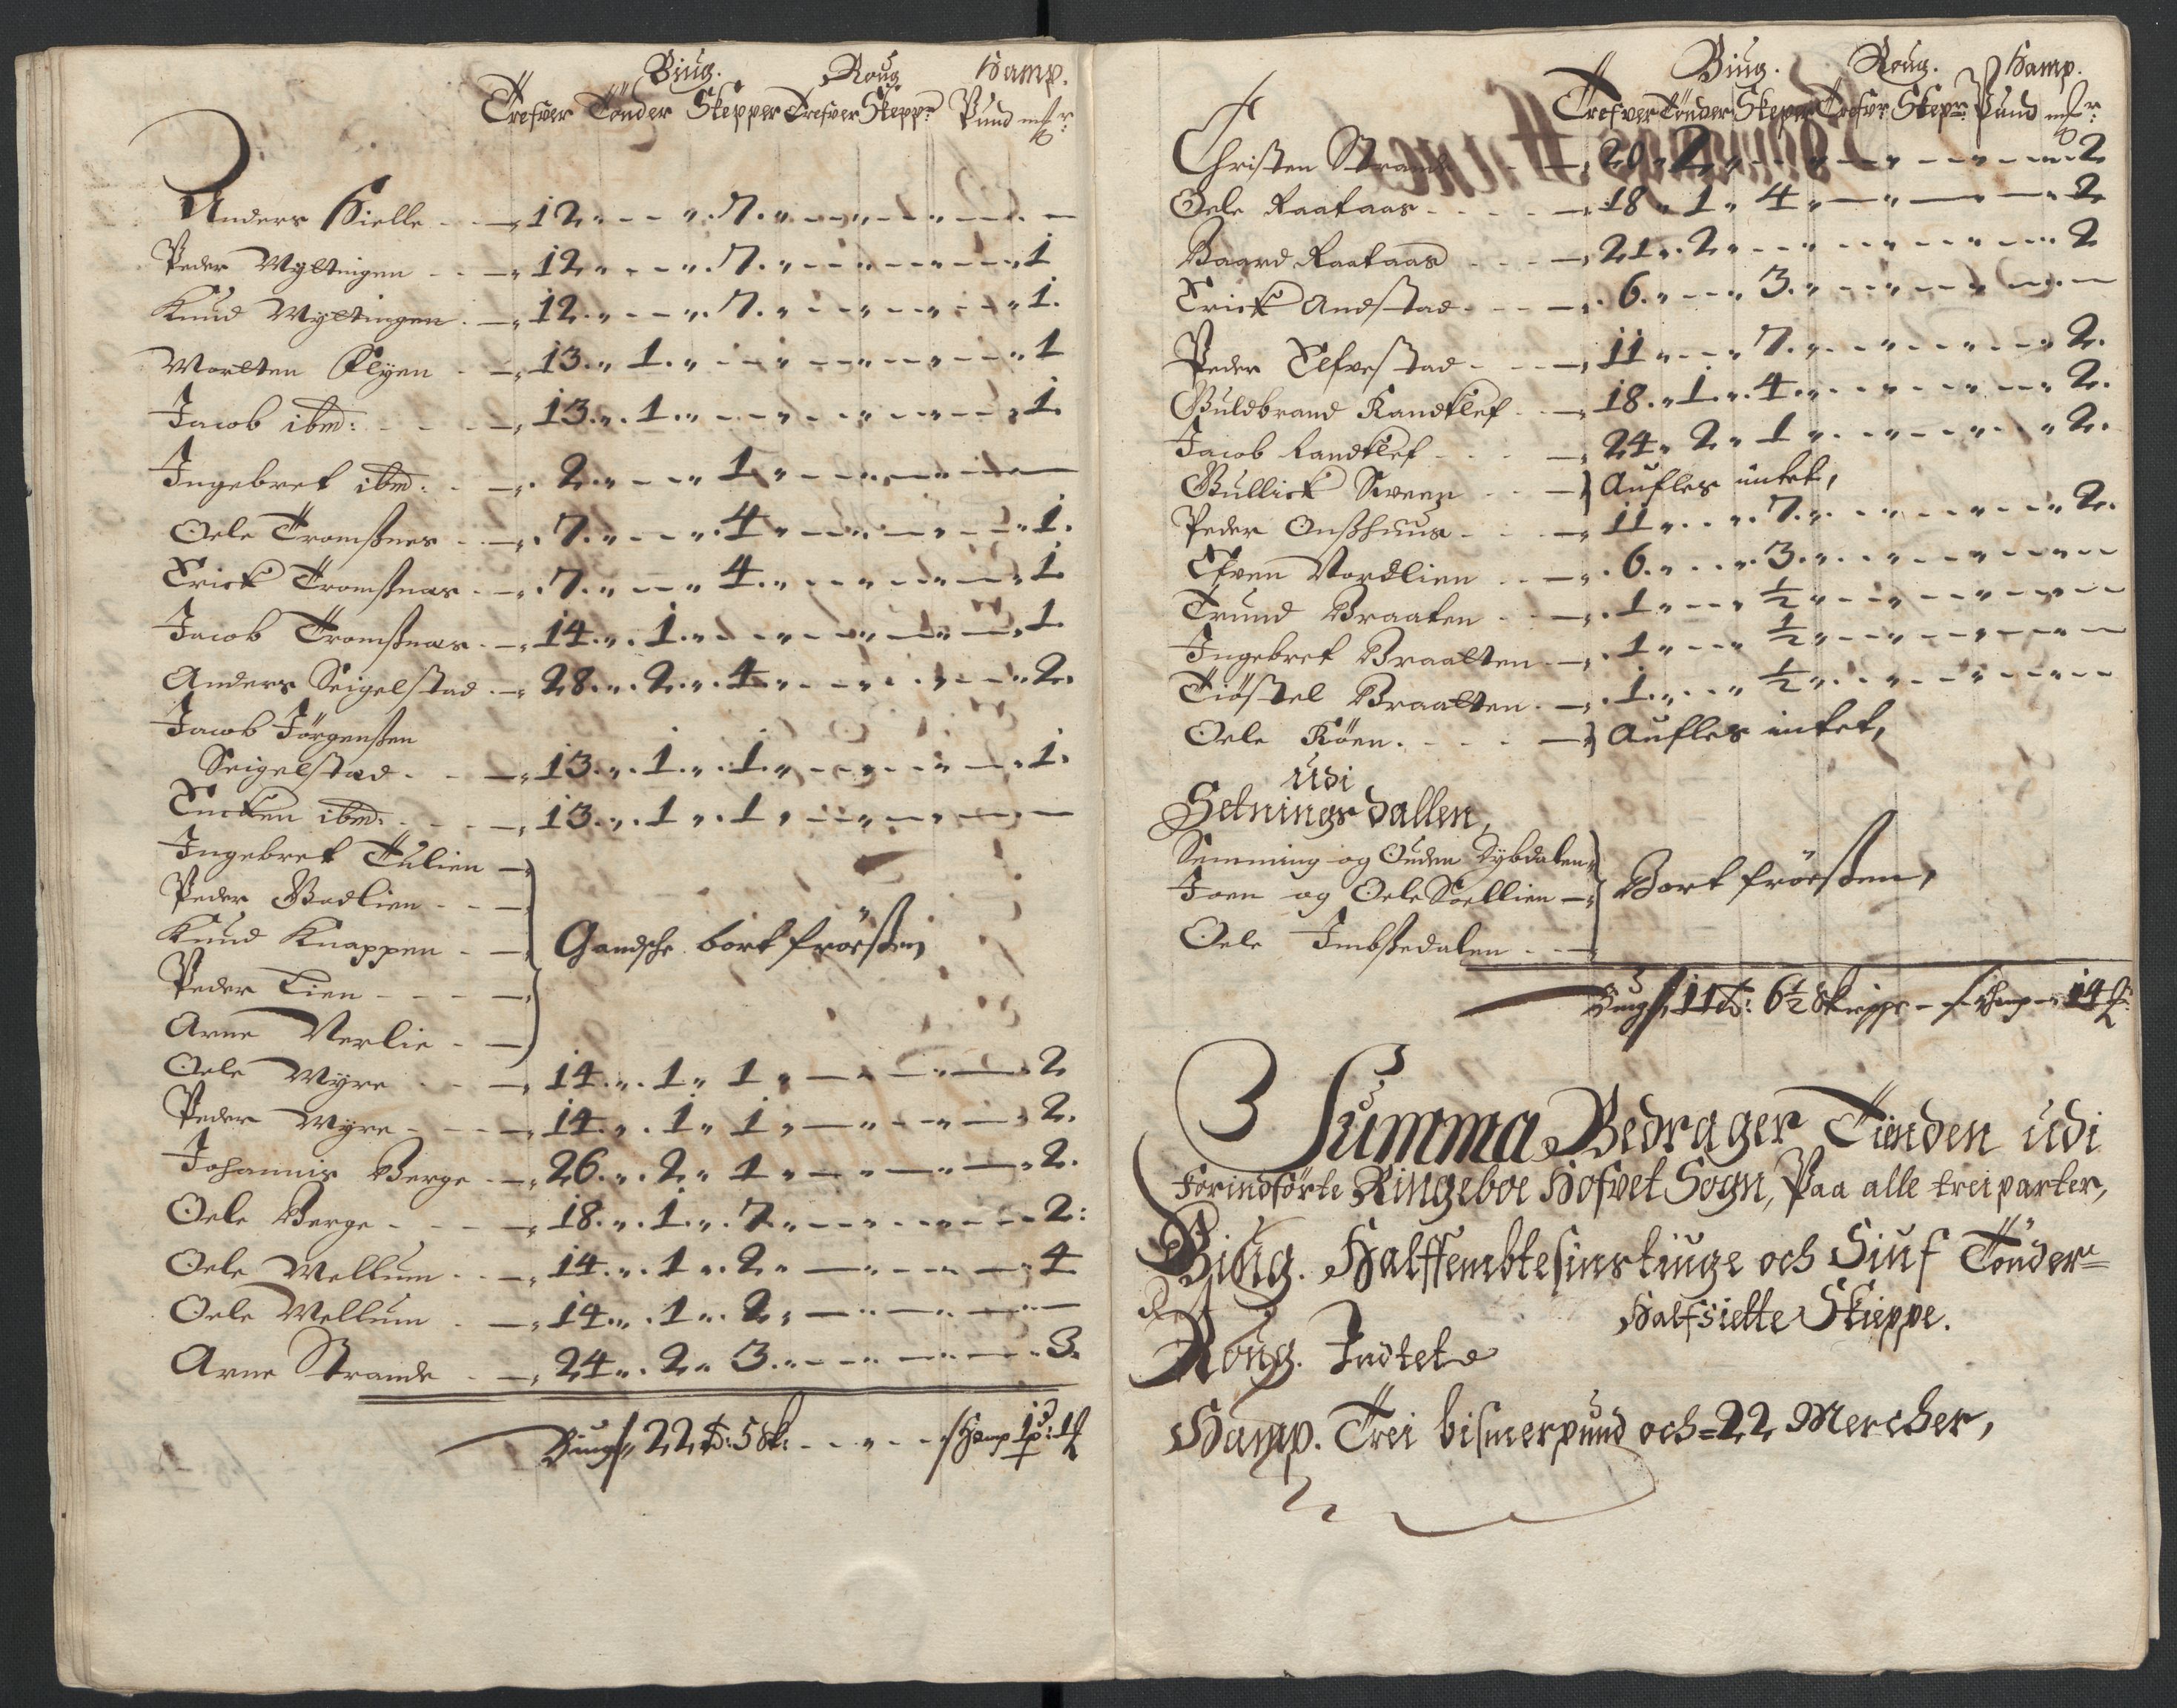 Biug. Roug Hamp.
Trefver Tønder Skepper Trefver Skepp: Pund mk:
Anders Kielle - - 12 - - 7 - - - -
Peder Myltingen - - 12 - - 7 - - - 1
Knud Myltingen - - 12 - - 7 - - - 1.
Morten Flyen - - 13 1 - - - - - 1
Jacob ibm: - - 13 1 - - - - - 1.
Ingebret ibm: - - 2 - - 1 - - - -
Oele Tromsnes - - 7 - - 4 - - - 1.
Erick Tromsnas - - 7 - - 4 - - - 1.
Jacob Tromsnas - - 14 1 - - - - - 1.
Anders Seigelstad - 28 2 4 - - - - 2.
Jacob Jørgensen
Seigelstad - - 13 1 1 - - - - 1.
ibm: - - 13 1 1 - - - -
Ingebret Tulien -
Peder Bødlien - -
Knud Knappen - - Gandsche bort frøesen
Peder Lien - - -
Arne Verlie - -
Oele Myre - - 14 1 1 - - - 2
Peder Myre - - 14 1 1 - - - 2.
Johannis Berge - 26 2 1 - - - 2.
Oele Berge - - 18 1 7 - - - 2:
Oele Mellum - - 14 1 2 - - - 4
Oele Mellum - - 14 1 2 - - - -
Arne Strande - - 24 2 3 - - - 3.
Biug 22 td: 5 sk: - - - - Hamp 1 p: 1
Biug. Roug. Hamp.
Trefver Tønder Skeper Trefvr Skepr: Pund mk:
Christen Strande - 20 2 - - - - - 2
Oele Raataas - - 18 1 4 - - - 2
Baard Raataas - - 21 2 - - - - 2
Erick Andstad - - 6 - - 3 - - - -
Peder Elfvestad - - 11 - - 7 - - - 2.
Guldbrand Randklef - 18 1 4 - - - 2.
Jacob Randklef - - 24 2 1 - - - 2.
Gullick Sveen - - Aufles intet,
Peder Onshuus - - 11 - - 7 - - - 2.
Efven Nordlien - - 6 - - 3 - - - -
Trund Braaten - - 1 - - ½ - - - -
Ingebret Braatten - 1 - - ½ - - - -
Tiøstel Braatten - 1 - - ½ - - - -
Oele Røen - - - Aufles intet,
udi
Setningsdallen,
Semming og Ouden Dybdalen
Joen og Oele Soellien - Bort frøesen,
Oele Imbsedalen - -
Biug 11 td: 6½ Skieppe - Hamp - 14
Summa Bedrager Tienden udi
forindførte Ringeboe Hofvet Sogn, Paa alle trei parter,
Biug. Halffembtesinstiuge och Siuf Tønder
Halfsiette Skieppe.
Roug. Indtet
Hamp. Trei bismerpund och 22 Mercher,